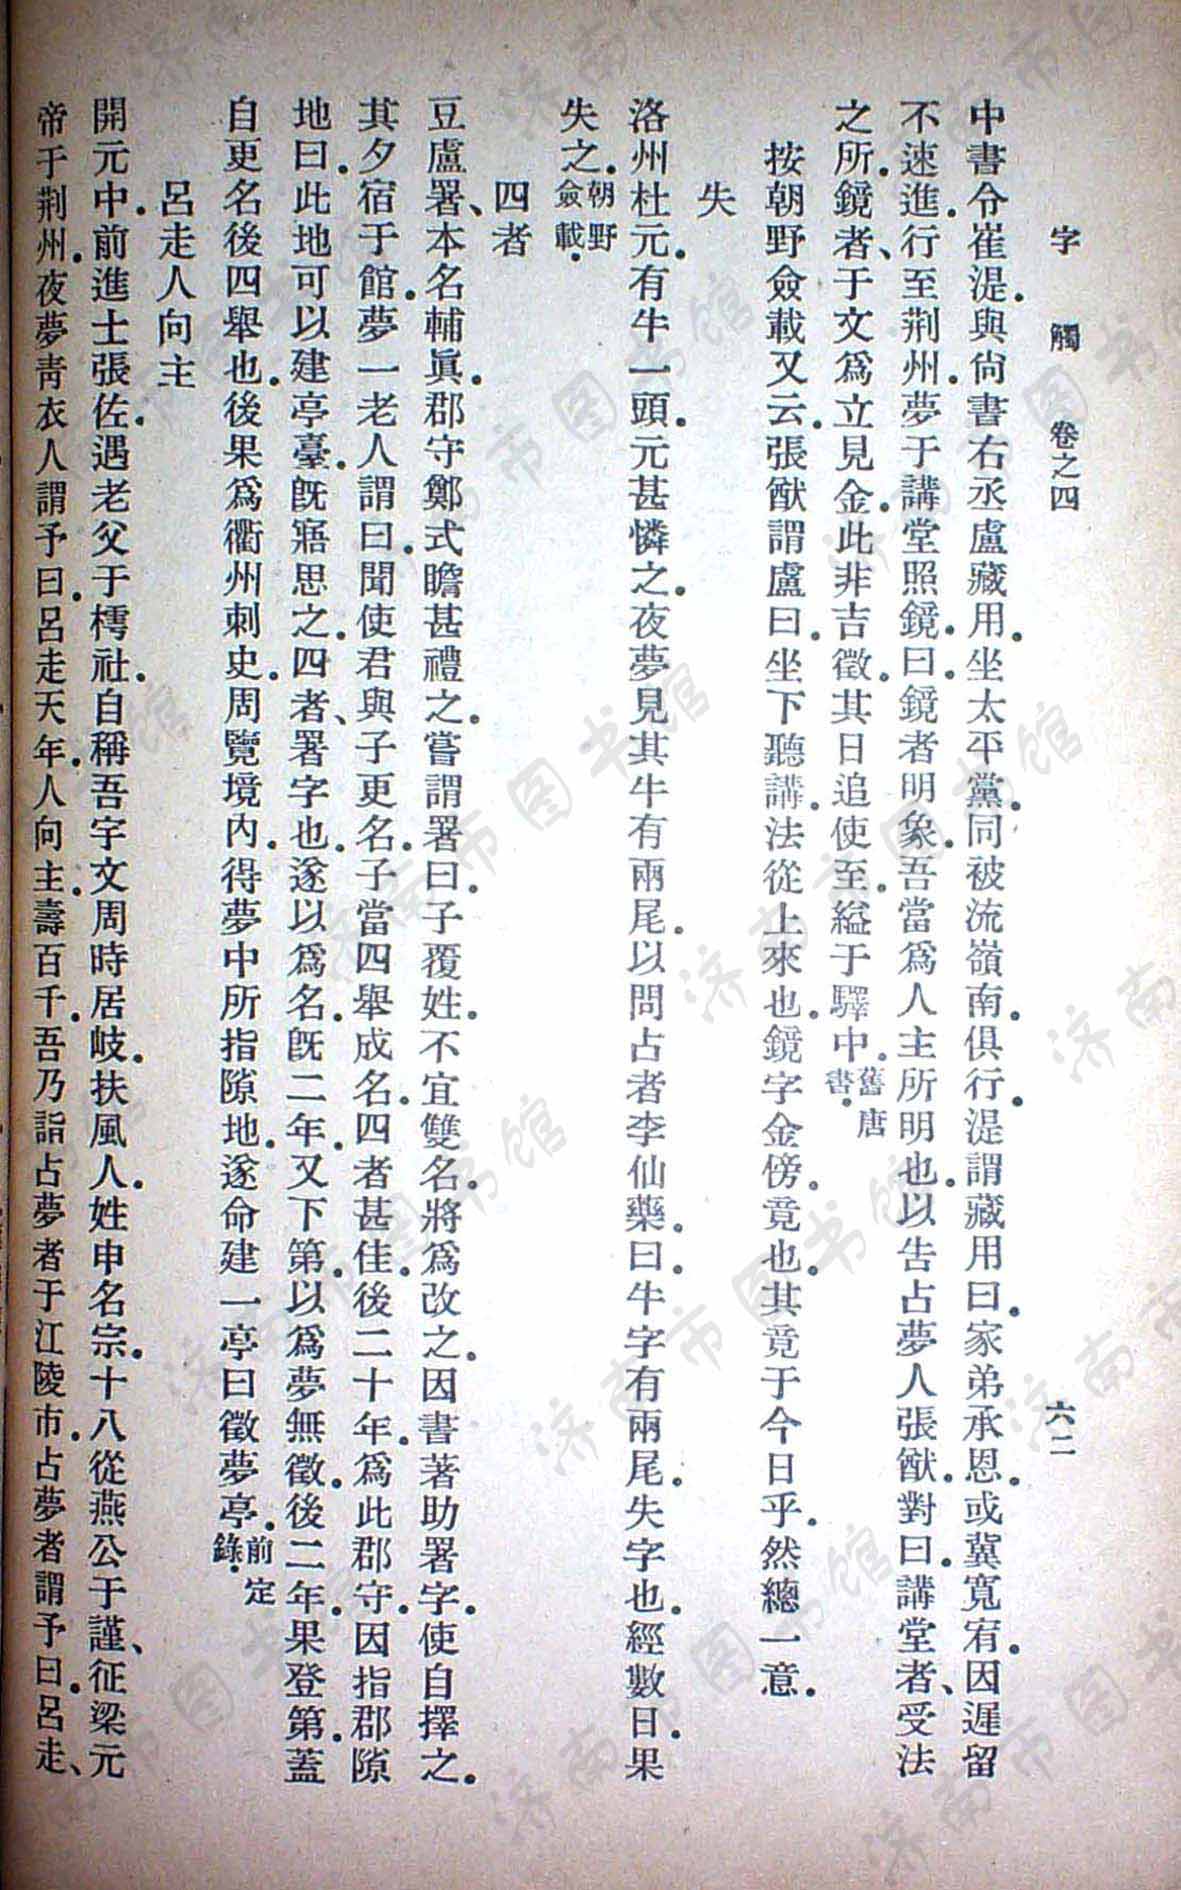 字觸 卷之四 六二
中書令崔湜與尙書右丞盧藏用坐太平黨同被流嶺南俱行湜謂藏用曰家弟承恩或冀寬宥因遲留
不速進行至荆州夢于講堂照鏡曰鏡者明象吾當爲人主所明也以告占夢人張猷對曰講堂者受法
之所鏡者于文爲立見金此非吉徵其日追使至縊于驛中舊唐書
按朝野僉載又云張猷謂盧曰坐下聽講法從上來也鏡字金傍竟也其竟于今日乎然總一意
失
洛州杜元有牛一頭元甚憐之夜夢見其牛有兩尾以問占者李仙藥曰牛字有兩尾失字也經數日果
失之朝野僉載
四者
豆盧署本名輔眞郡守鄭式瞻甚禮之嘗謂署曰子覆姓不宜雙名將爲改之因書著助署字使自擇之
其夕宿于館夢一老人謂曰聞使君與子更名子當四舉成名四者甚佳後二十年爲此郡守因指郡隙
地曰此地可以建亭臺旣寤思之四者署字也遂以爲名旣二年又下第以爲夢無徵後二年果登第蓋
自更名後四舉也後果爲衢州刺史周覽境內得夢中所指隙地遂命建一亭曰徵夢亭前定錄
呂走人向主
開元中前進士張佐遇老父于樗社自稱吾宇文周時居岐扶風人姓申名宗十八從燕公于謹征梁元
帝于荆州夜夢靑衣人謂予曰呂走天年人向主壽百千吾乃詣占夢者于江陵市占夢者謂予曰呂走
济南市图书馆